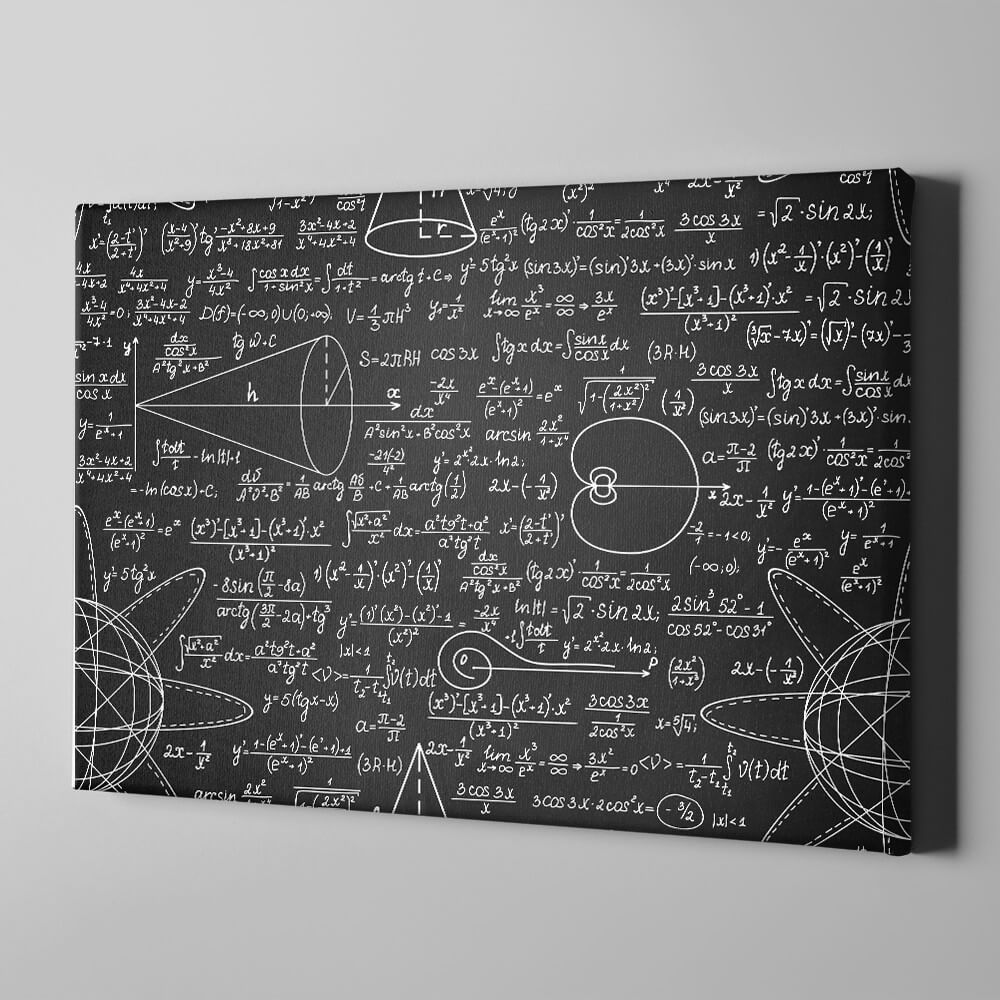 x'=(2-t/2+t)' (x-4/x²-9)' tg'(-x²+8x+9)/(x⁴+18x²+81) (3x²-4x+2)/(x⁴+4x²-4) r e^x/(e^x+1)² (tg2x)' 1/cos²x = 1/2cos²x (3cos3x)/x =√2·sin2x;
4x/(x⁴+4x²+4) y=(x³-4)/4x² ∫cosxdx/(1+sin²x)=∫dt/(1+t²)=arctgt+C⇒ y'=5tg²x (sin3x)'=(sin)'3x+(3x)'·sinx 1)(x²-1/x)'·(x²)'-(1/x)'
(x³-4)/4x²=0; (3x²-4x-2)/(x⁴+4x²+4) D(f)=(-∞;0)∪(0;+∞); V=1/3πH³ y=1/x² lim x→∞ x³/e^x=∞/∞⇒3x/e^x ((x³)'-[x³+1]-(x³+1)'·x²)/(x³+1)² =√2·sin2x
(∛x-7x)'=(√x)'-(7x)'-3
²-7·1 y (dx/cos²x)/(A²tg²x+B²) tgW+C S=2πRH cos3x ∫tgxdx=∫sinx/cosx dx (3R·H)
sinxdx/cosx h x -2x/x⁴ (e^x-(e^x+1))/(e^x+1)²=e^x 1/√(1-(2x²/(1+x²))²) (1/x²) (3cos3x)/x ∫tgxdx=∫sinx/cosx dx
y=1/(e^x+1) dx/(A²sin²x+B²cos²x) arcsin 2x²/(1+x⁴) (sin3x)'=(sin)'3x+(3x)'·sin
(3x²-4x+2)/(x⁴+4x²+4) ∫tdt/t -ln|t|+1 -21(-2)/4² y'=2^x²·2x·ln2; a=(π-2)/π (tg2x)' 1/cos²x=1/2cos²x
=-ln(cosx)+C; =1/AB arctg Aб/B+C+1/AB arctg(1/2) 2x-(-1/x²) x 2x-1/x² y'=(1-(e^x+1)'-(e'+1))/(e^x+1)²
(e^x-(e^x+1))/(e^x+1)²=e^x ((x³)'-[x³+1]-(x³+1)'·x²)/(x³+1)² ∫√(x²+a²)/x² dx=(a²tg²t+a²)/(a²tg²t) x'=(2-t'/2+t)' -2/1=-1<0; y'=-e^x/(e^x+1)² y=1/(e^x+1)
y'=5tg²x -8sin(π/2-8a) 1)(x²-1/x)'·(x²)'-(1/x)' (dx/cos²x)/(A²tg²x+B²) (tg2x)' 1/cos²x=1/2cos²x (-∞;0); e^x/(e^x+1)²
arctg(3π/2-2a)+tg³ y'=((1)'(x²)-(x²)'-1)/(x²)² = -2x/x⁴ ln|t|=√2·sin2x; (2sin³52°-1)/(cos52°-cos31°)
∫√(x²+a²)/x² dx=(a²tg²t+a²)/(a²tg²t) |x|<1 +1∫tdt/t y'=2^x²·2x·ln2;
<V>=1/(t₂-t₁)∫v(t)dt o P (2x²/(1+x³)) 2x-(-1/x³)
y=5(tgx-x) ((x³)'-[x³+1]-(x³+1)'·x²)/(x³+1)² 3cos3x/(1/2cos²x) x=⁵√4;
a=(π-2)/π
2x-1/x² y'=(1-(e^x+1)'-(e'+1)+1)/(e^x+1)² (3R·H) 2x-1/x² lim x→∞ x³/e^x=∞/∞⇒3x²/e^x=0 <V>=1/(t₂-t₁)∫v(t)dt
arcsin 2x² (3cos3x)/x 3cos3x·2cos²x= -3/2 |x|<1